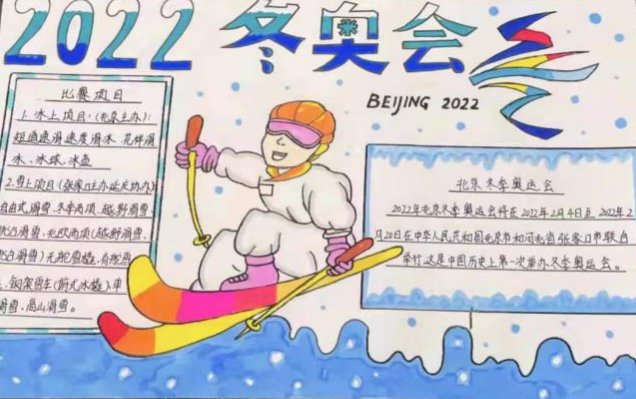 2022 冬奥会
BEIJING 2022
比赛项目
1.冰上项目:(北京主办):
短道速滑 速度滑冰 花样滑
冰、冰球、冰壶
2.雪上项目(张家口主办延庆协办)
自由式滑雪、冬季两项、越野滑雪、
跳台滑雪、北欧两项(越野滑雪、
跳台滑雪)无舵雪橇、有舵雪
、钢架雪车(俯式冰橇)、单
滑雪、高山滑雪。
北京冬季奥运会
2022年北京冬季奥运会将在2022年2月4日至2022年2
月20日在中华人民共和国北京市和河北省张家口市联合
举行 这是中国历史上第一次举办冬季奥运会。